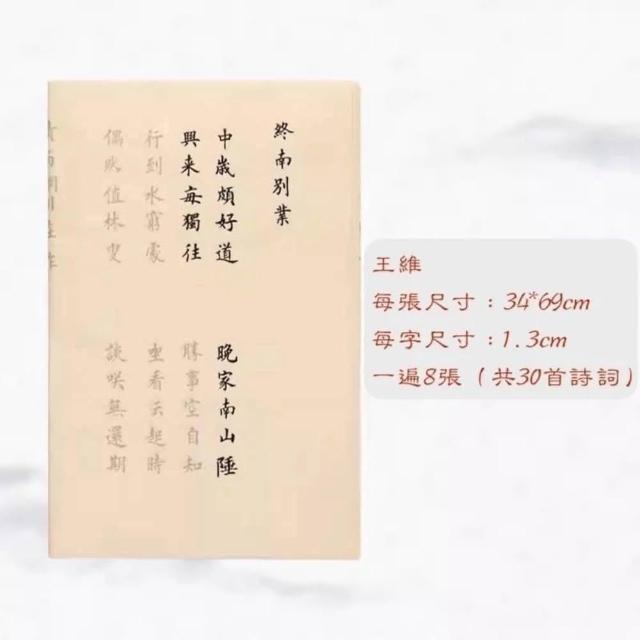 終南別業
中歳頗好道 晚家南山陲
興来每獨往 勝事空自知
行到水窮處 坐看云起時
偶然值林叟 談咲無還期
王維
每張尺寸：34*69cm
每字尺寸：1.3cm
一遍8張（共30首詩詞）